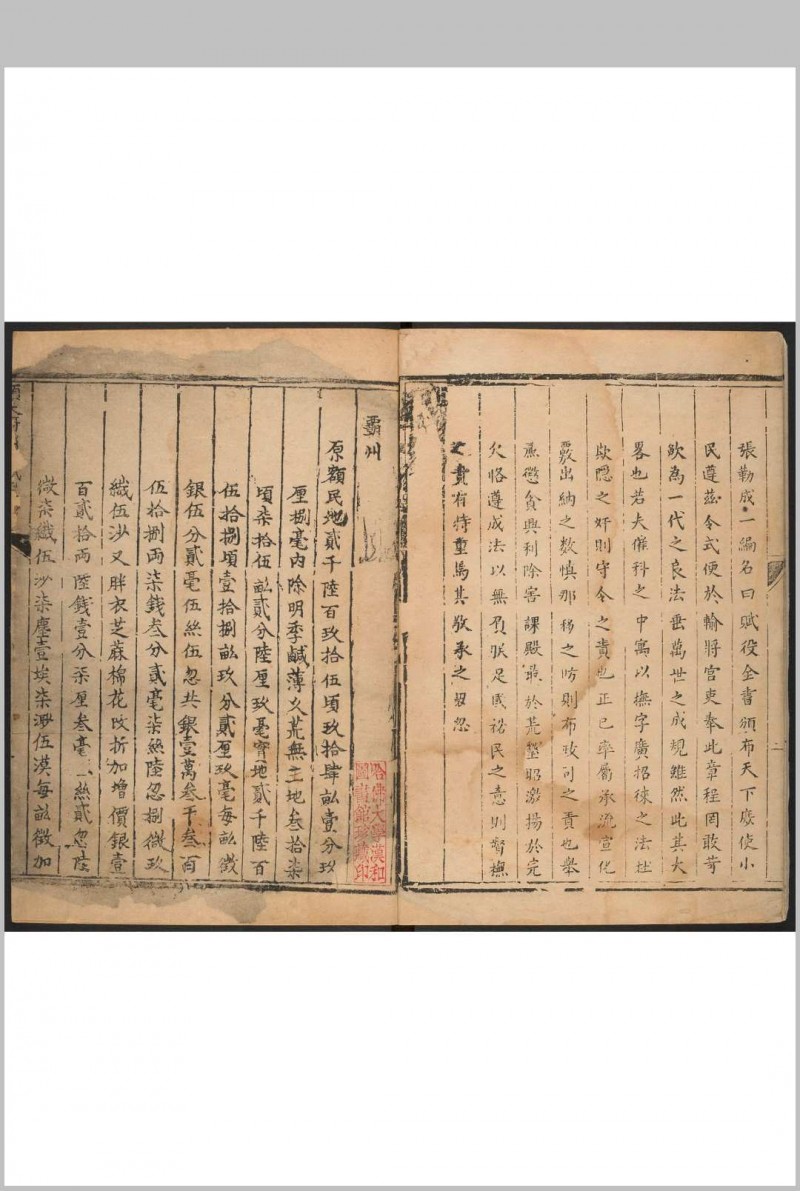 張勒成一編名曰賦役全書頒布天下庶使小
民遵茲令式便於輸將官吏奉此章程罔敢苛
歛為一代之良法垂萬世之成規雖然此其大
畧也若夫催科之中寓以撫字廣招徠之法杜
欺隱之奸則守令之責也正己率屬承流宣化
覈出納之数慎那移之防則布政司之責也舉
廉懲貪興利除害課殿最於荒墾昭激揚於完
欠恪遵成法以無負朕足國裕民之意則督撫
之責有特重焉其敬承之毋忽
二
霸州
原額民地貳千陸百玖拾伍頃玖拾肆畝壹分玖
厘捌毫內除明季鹹薄久荒無主地叁拾柒
頃柒拾伍畝貳分陸厘玖毫實地貳千陸百
伍拾捌頃壹拾捌畝玖分貳厘玖毫每畝徵
銀伍分貳毫伍絲伍忽共銀壹萬叁千叁百
伍拾捌兩柒錢叁分貳毫柒絲陸忽捌微玖
纖伍沙又胖衣芝蔴棉花改折加增價銀壹
百貳拾兩陸錢壹分柒厘叁毫一絲貳忽陸
微柒纖伍沙柒塵壹埃柒渺伍漠每畝徵加
哈佛大學漢和
圖書館珍藏印